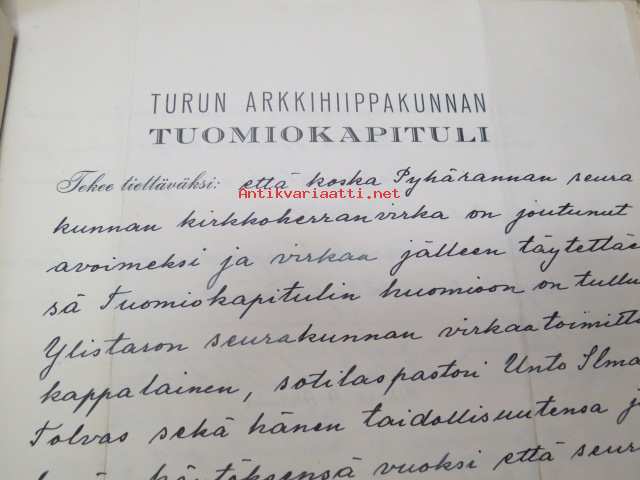 TURUN ARKKIHIIPPAKUNNAN
TUOMIOKAPITULI
Tekee tiettäväksi: että koska Pyhärannan seura
Antikvariaatti.net
kunnan kirkkoherranvirka on joutunut
avoimeksi ja virkaa jälleen täytettäes
sä Tuomiokapitulin huomioon on tullu
Ylistaron seurakunnan virkaatoimitta
kappalainen, sotilaspastori Unto Ilma
Tolvas sekä hänen taidollisuutensa j
käytöksensä vuoksi että seur